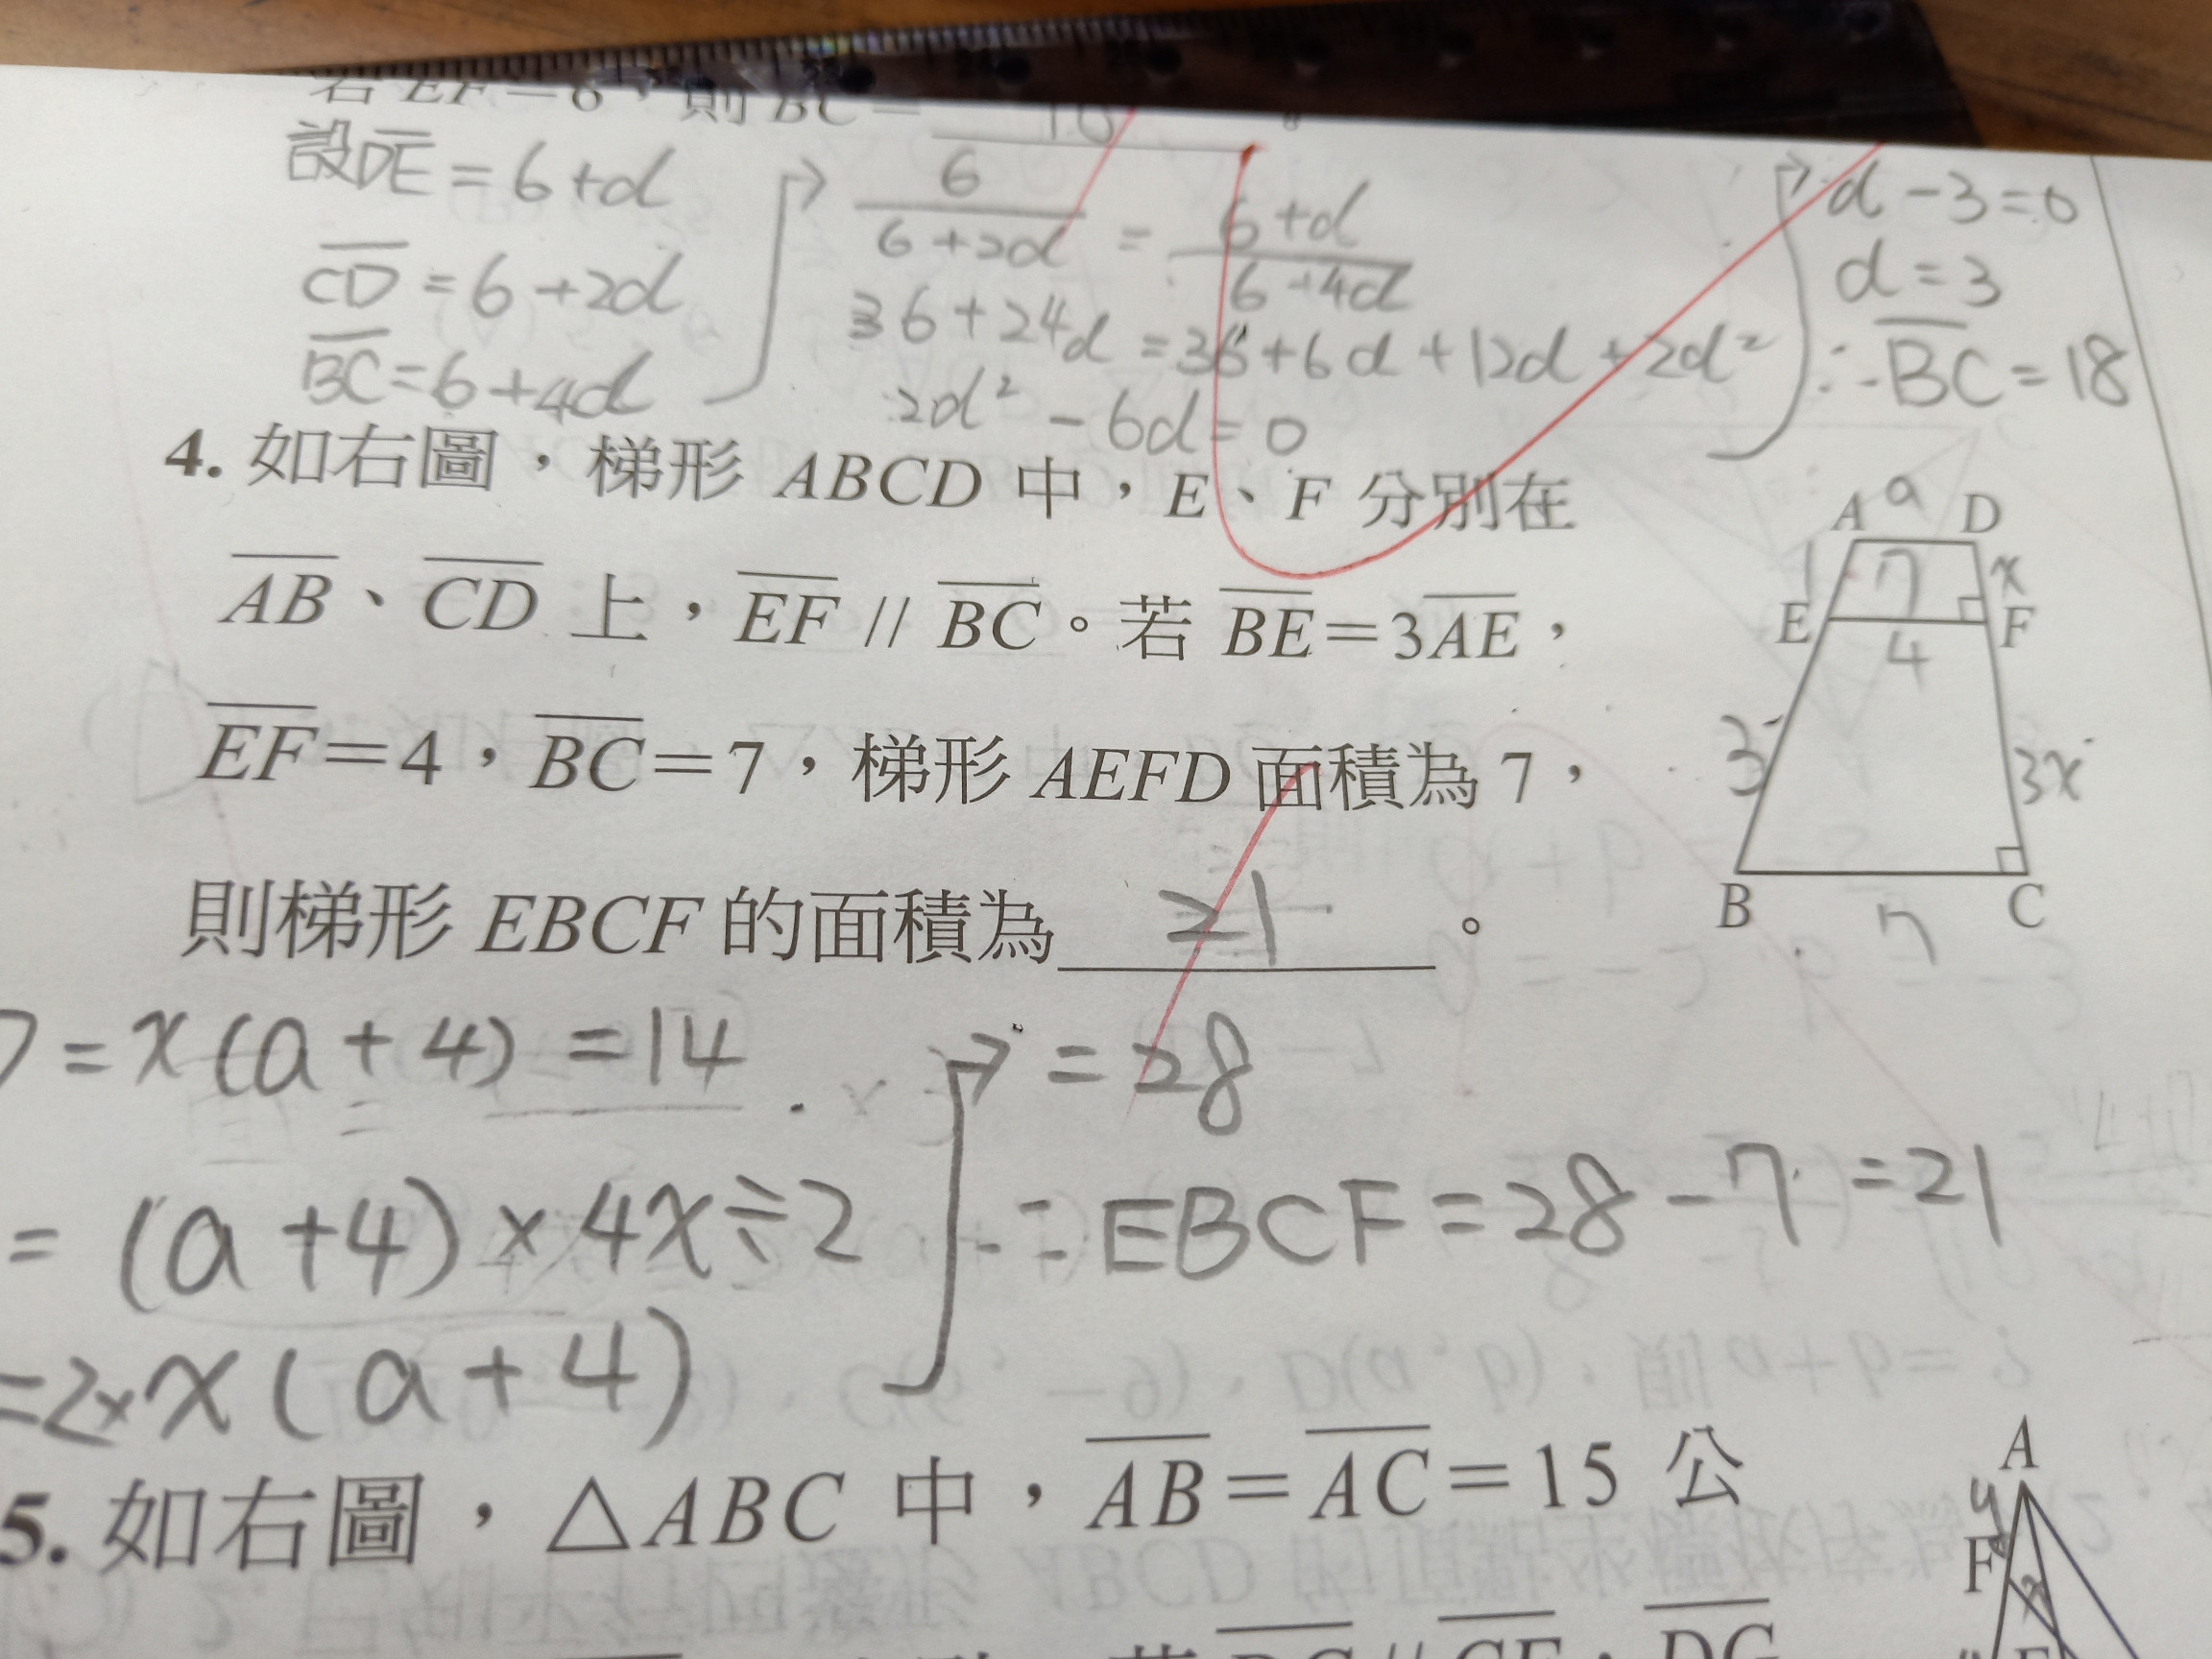 若 EF=6，則 BC= 18 。
設DE=6+d
CD=6+2d
BC=6+4d
6/(6+2d) = (6+d)/(6+4d)
36+24d=36+6d+12d+2d²
2d²-6d=0
d-3=0
d=3
∴BC=18
4. 如右圖，梯形 ABCD 中，E、F 分別在
AB、CD 上，EF // BC。若 BE=3AE，
EF=4，BC=7，梯形 AEFD 面積為 7，
則梯形 EBCF 的面積為 21 。
A a D
1 7 x
E F
4
3 3x
B C
7
7=x(a+4)=14
=(a+4)×4x÷2
=2×x(a+4)
=28
∴EBCF=28-7=21
5. 如右圖，△ABC 中，AB=AC=15 公
A
F